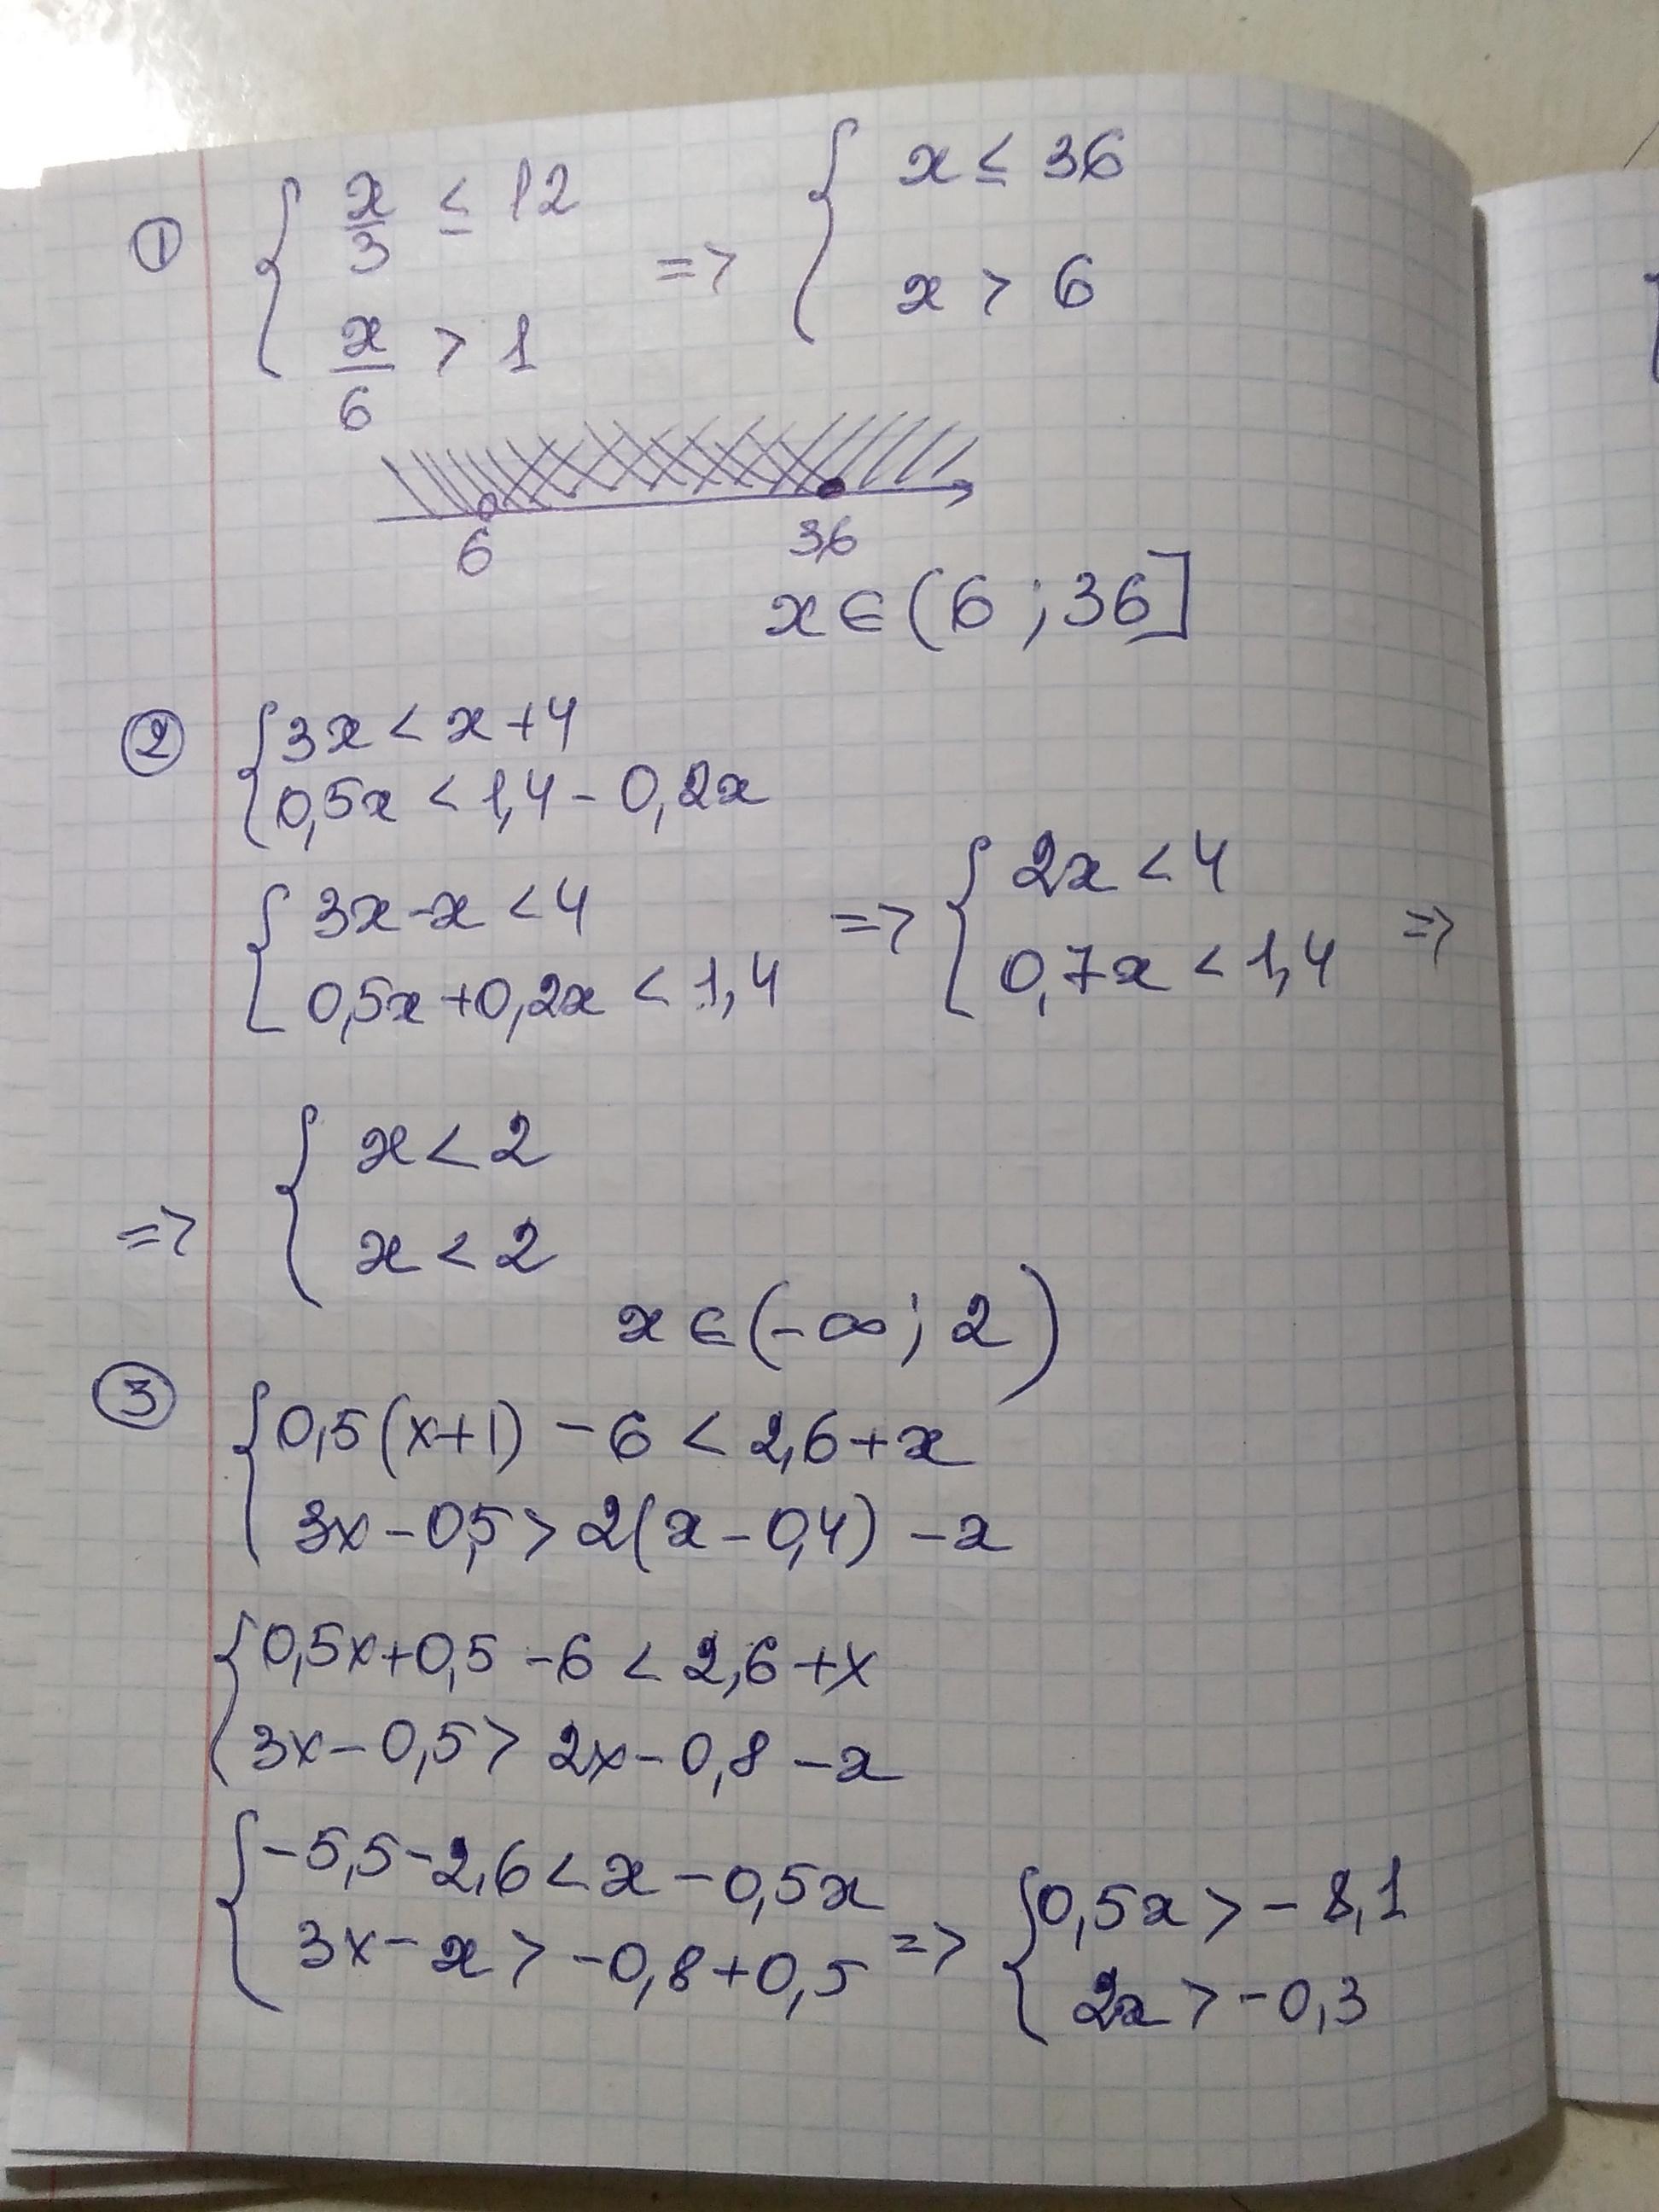 ① { x/3 ≤ 12 => { x ≤ 36
x/6 > 1 x > 6
6 36
x ∈ (6 ; 36]
② { 3x < x + 4
0,5x < 1,4 - 0,2x
{ 3x - x < 4 => { 2x < 4 =>
0,5x + 0,2x < 1,4 0,7x < 1,4
=> { x < 2
x < 2
x ∈ (-∞ ; 2)
③ { 0,5(x+1) - 6 < 2,6 + x
3x - 0,5 > 2(x - 0,4) - x
{ 0,5x + 0,5 - 6 < 2,6 + x
3x - 0,5 > 2x - 0,8 - x
{ -5,5 - 2,6 < x - 0,5x => { 0,5x > -8,1
3x - x > -0,8 + 0,5 2x > -0,3